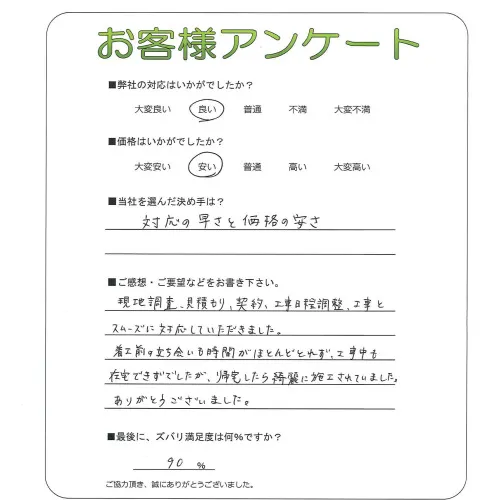 お客様アンケート
■弊社の対応はいかがでしたか？
大変良い 良い 普通 不満 大変不満
■価格はいかがでしたか？
大変安い 安い 普通 高い 大変高い
■当社を選んだ決め手は？
対応の早さと価格の安さ
■ご感想・ご要望などをお書き下さい。
現地調査、見積もり、契約、工事日程調整、工事と
スムーズに対応していただきました。
着工前の立ち会いも時間がほとんどとれず、工事中も
在宅できずでしたが、帰宅したら綺麗に施工されていました。
ありがとうございました。
■最後に、ズバリ満足度は何％ですか？
90 %
ご協力頂き、誠にありがとうございました。